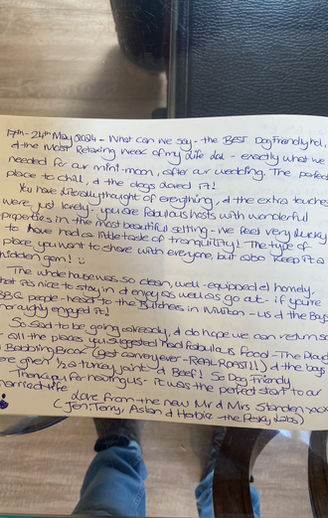 17th - 24th May 2024 - What can we say - the BEST Dog Friendly hol,
& the Most Relaxing week of my life
exactly what we
needed for our mini-moon, after our wedding. The perfect
place to chill, & the dogs loved it!
You have literally thought of everything, & the extra touches
were just lovely. you are fabulous hosts with wonderful
properties in the most beautiful setting - we feel very lucky
to have had a little taste of tranquility! The type of
place you want to share with everyone, but also keep it a
hidden gem! :)
The whole house was so clean, well-equipped & homely.
that it's nice to stay in & enjoy as well as go out - if you're
BBQ people - head to the Butchers in
- us & the Boys
thoroughly enjoyed it!
So sad to be going already, & do hope we can return so
- all the places you suggested had fabulous food - The Plough
& Babbling Brook (best carvery ever - REAL ROAST!!) & the boys
were given 1/2 a turkey joint & Beef! So Dog Friendly
Thank you for having us - it was the perfect start to our
married life
Love from the new Mr & Mrs Standen xxx
(Jen, Terry, Aslan & Herbie - the Pesky Labs)